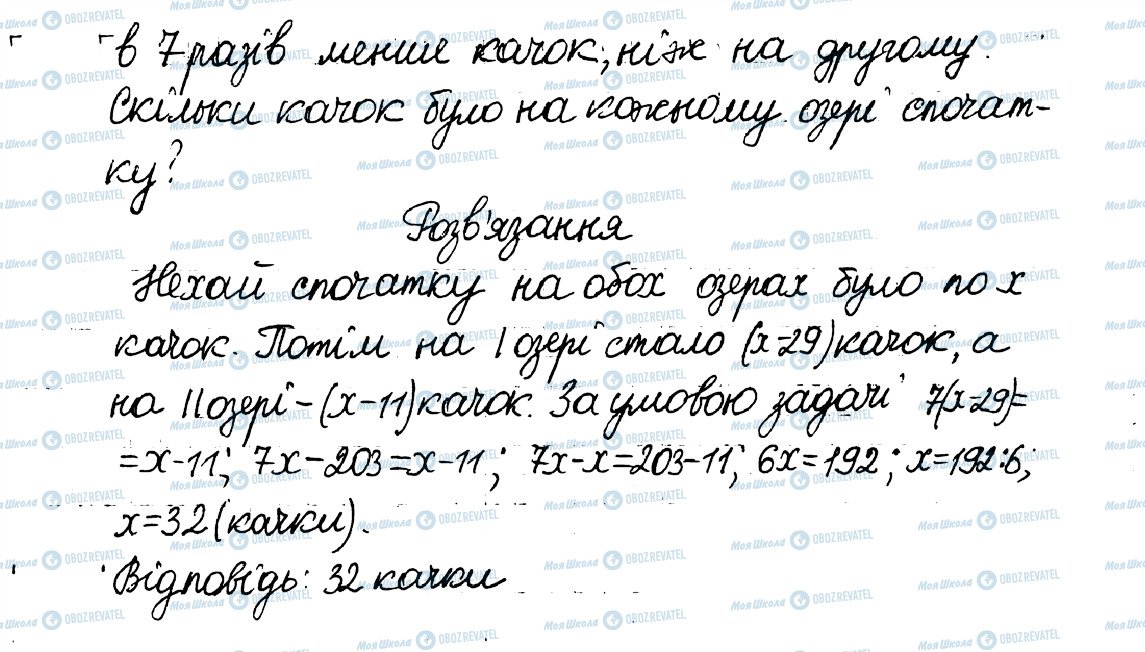 в 7 разів менше качок, ніж на другому.
Скільки качок було на кожному озері спочат-
ку?
Розв'язання
Нехай спочатку на обох озерах було по х
качок. Потім на І озері стало (х-29) качок, а
на ІІ озері - (х-11) качок. За умовою задачі 7(х-29)=
=х-11; 7х-203=х-11; 7х-х=203-11; 6х=192; х=192:6;
х=32 (качки).
Відповідь: 32 качки